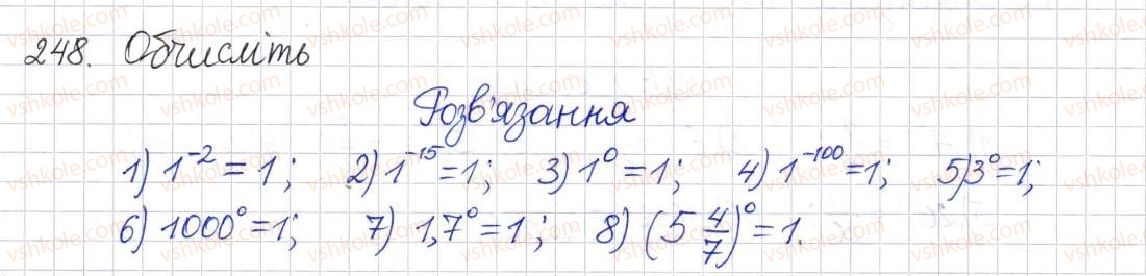 248. Обчисліть
Розв'язання
1) 1⁻² = 1; 2) 1⁻¹⁵ = 1; 3) 1⁰ = 1; 4) 1⁻¹⁰⁰ = 1; 5) 3⁰ = 1;
6) 1000⁰ = 1; 7) 1,7⁰ = 1; 8) (5 4/7)⁰ = 1.